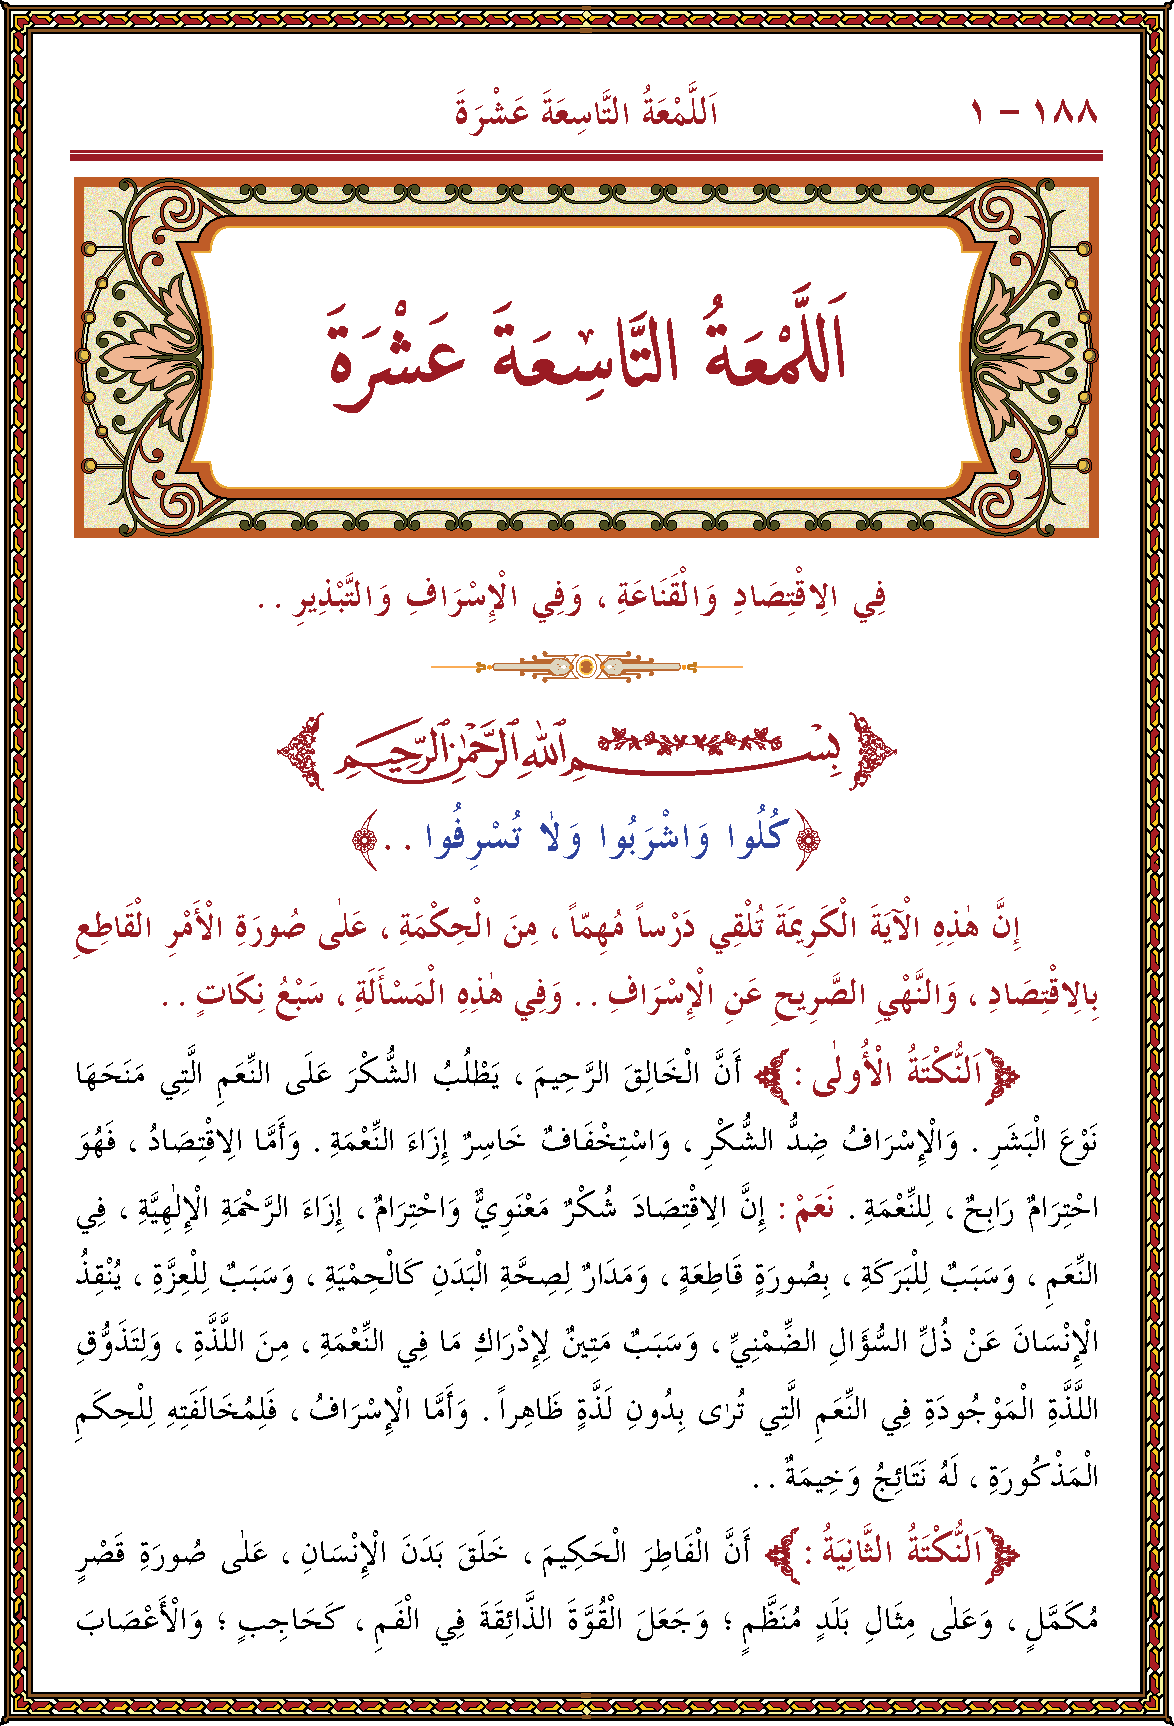 ١٨٨ – ١
اَللَّمْعَةُ التَّاسِعَةَ عَشْرَةَ
اَللَّمْعَةُ التَّاسِعَةَ عَشْرَةَ
فِي الِاقْتِصَادِ وَالْقَنَاعَةِ ، وَفِي الْإِسْرَافِ وَالتَّبْذِيرِ . .
بِسْمِ اللهِ الرَّحْمٰنِ الرَّحِيمِ
﴿كُلُوا وَاشْرَبُوا وَلَا تُسْرِفُوا . .﴾
إِنَّ هٰذِهِ الْآيَةَ الْكَرِيمَةَ تُلْقِي دَرْساً مُهِمّاً ، مِنَ الْحِكْمَةِ ، عَلٰى صُورَةِ الْأَمْرِ الْقَاطِعِ
بِالِاقْتِصَادِ ، وَالنَّهْيِ الصَّرِيحِ عَنِ الْإِسْرَافِ . . وَفِي هٰذِهِ الْمَسْأَلَةِ ، سَبْعُ نِكَاتٍ . .
﴿اَلنُّكْتَةُ الْأُولٰى :﴾ أَنَّ الْخَالِقَ الرَّحِيمَ ، يَطْلُبُ الشُّكْرَ عَلَى النِّعَمِ الَّتِي مَنَحَهَا
نَوْعَ الْبَشَرِ . وَالْإِسْرَافُ ضِدُّ الشُّكْرِ ، وَاسْتِخْفَافٌ خَاسِرٌ إِزَاءَ النِّعْمَةِ . وَأَمَّا الِاقْتِصَادُ ، فَهُوَ
احْتِرَامٌ رَابِحٌ ، لِلنِّعْمَةِ . نَعَمْ : إِنَّ الِاقْتِصَادَ شُكْرٌ مَعْنَوِيٌّ وَاحْتِرَامٌ ، إِزَاءَ الرَّحْمَةِ الْإِلٰهِيَّةِ ، فِي
النِّعَمِ ، وَسَبَبٌ لِلْبَرَكَةِ ، بِصُورَةٍ قَاطِعَةٍ ، وَمَدَارٌ لِصِحَّةِ الْبَدَنِ كَالْحِمْيَةِ ، وَسَبَبٌ لِلْعِزَّةِ ، يُنْقِذُ
الْإِنْسَانَ عَنْ ذُلِّ السُّؤَالِ الضِّمْنِيِّ ، وَسَبَبٌ مَتِينٌ لِإِدْرَاكِ مَا فِي النِّعْمَةِ ، مِنَ اللَّذَّةِ ، وَلِتَذَوُّقِ
اللَّذَّةِ الْمَوْجُودَةِ فِي النِّعَمِ الَّتِي تُرٰى بِدُونِ لَذَّةٍ ظَاهِراً . وَأَمَّا الْإِسْرَافُ ، فَلِمُخَالَفَتِهِ لِلْحِكَمِ
الْمَذْكُورَةِ ، لَهُ نَتَائِجُ وَخِيمَةٌ . .
﴿اَلنُّكْتَةُ الثَّانِيَةُ :﴾ أَنَّ الْفَاطِرَ الْحَكِيمَ ، خَلَقَ بَدَنَ الْإِنْسَانِ ، عَلٰى صُورَةِ قَصْرٍ
مُكَمَّلٍ ، وَعَلٰى مِثَالِ بَلَدٍ مُنَظَّمٍ ؛ وَجَعَلَ الْقُوَّةَ الذَّائِقَةَ فِي الْفَمِ ، كَحَاجِبٍ ؛ وَالْأَعْصَابَ